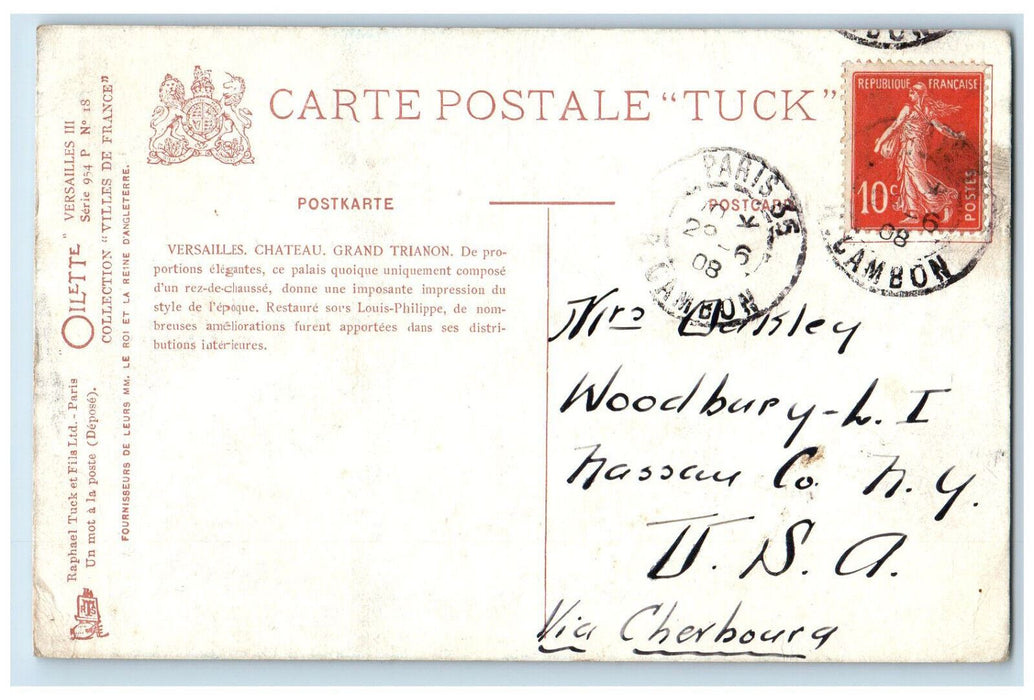 CARTE POSTALE "TUCK"
POSTKARTE
POSTCARD
VERSAILLES. CHATEAU. GRAND TRIANON. De pro-
portions élégantes, ce palais quoique uniquement composé
d'un rez-de-chaussé, donne une imposante impression du
style de l'époque. Restauré sous Louis-Philippe, de nom-
breuses améliorations furent apportées dans ses distri-
butions intérieures.
OILETTE" VERSAILLES III
Série 954 P Nº 18
COLLECTION "VILLES DE FRANCE"
FOURNISSEURS DE LEURS MM. LE ROI ET LA REINE D'ANGLETERRE.
Raphael Tuck et Fils Ltd. - Paris
Un mot à la poste (Déposé).
REPUBLIQUE FRANÇAISE
10c
POSTES
PARIS 35
6
08
CAMBON
6
08
CAMBON
Mrs Oakley
Woodbury - L. I
Nassau Co. N. Y.
U. S. A.
Via Cherbourg